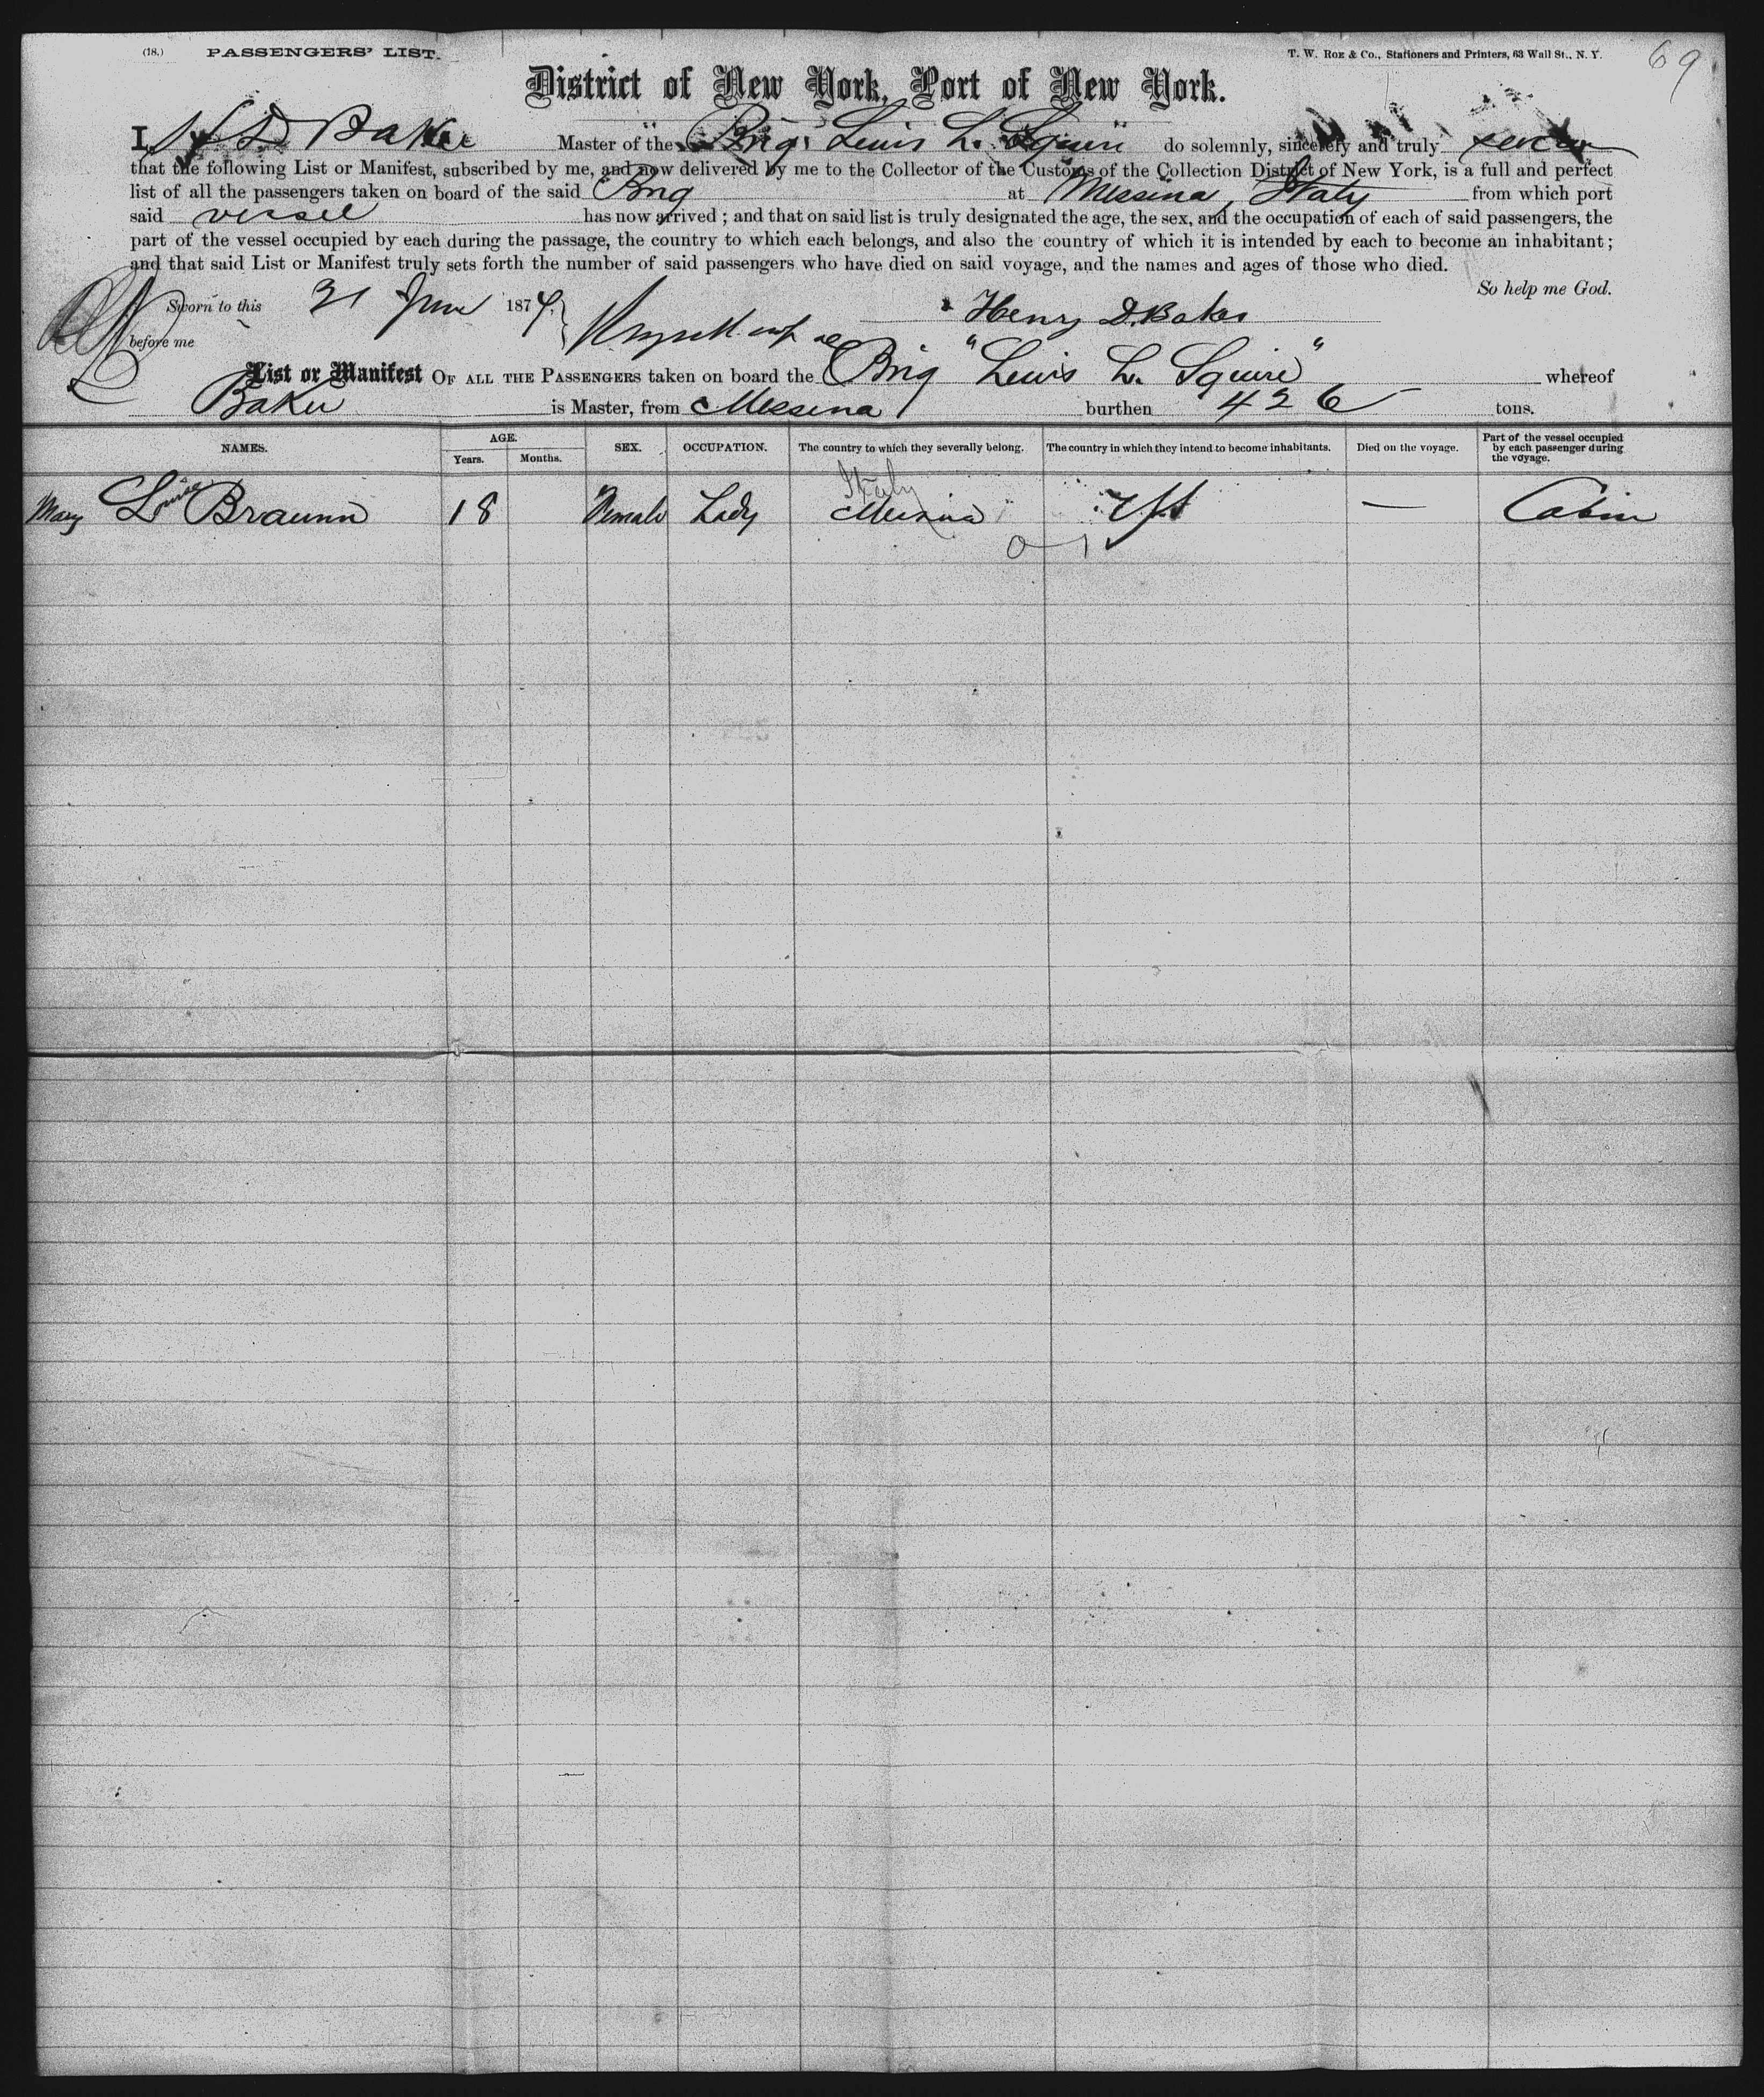 (18.) PASSENGERS' LIST. T. W. Roe & Co., Stationers and Printers, 63 Wall St., N. Y. 69
District of New York, Port of New York.
I, H D Baker Master of the Brig "Lewis L. Squire" do solemnly, sincerely and truly swear
that the following List or Manifest, subscribed by me, and now delivered by me to the Collector of the Customs of the Collection District of New York, is a full and perfect
list of all the passengers taken on board of the said Brig at Messina, Italy from which port
said vessel has now arrived; and that on said list is truly designated the age, the sex, and the occupation of each of said passengers, the
part of the vessel occupied by each during the passage, the country to which each belongs, and also the country of which it is intended by each to become an inhabitant;
and that said List or Manifest truly sets forth the number of said passengers who have died on said voyage, and the names and ages of those who died.
So help me God.
Sworn to this 21 1874
Henry D. Baker
before me
List or Manifest OF ALL THE PASSENGERS taken on board the Brig "Lewis L. Squire" whereof
Baker is Master, from Messina burthen 426 tons.
NAMES. AGE. Years. Months. SEX. OCCUPATION. The country to which they severally belong. The country in which they intend to become inhabitants. Died on the voyage. Part of the vessel occupied by each passenger during the voyage.
Italy
Mary Louise Braunn 18 Female Lady Messina — Cabin